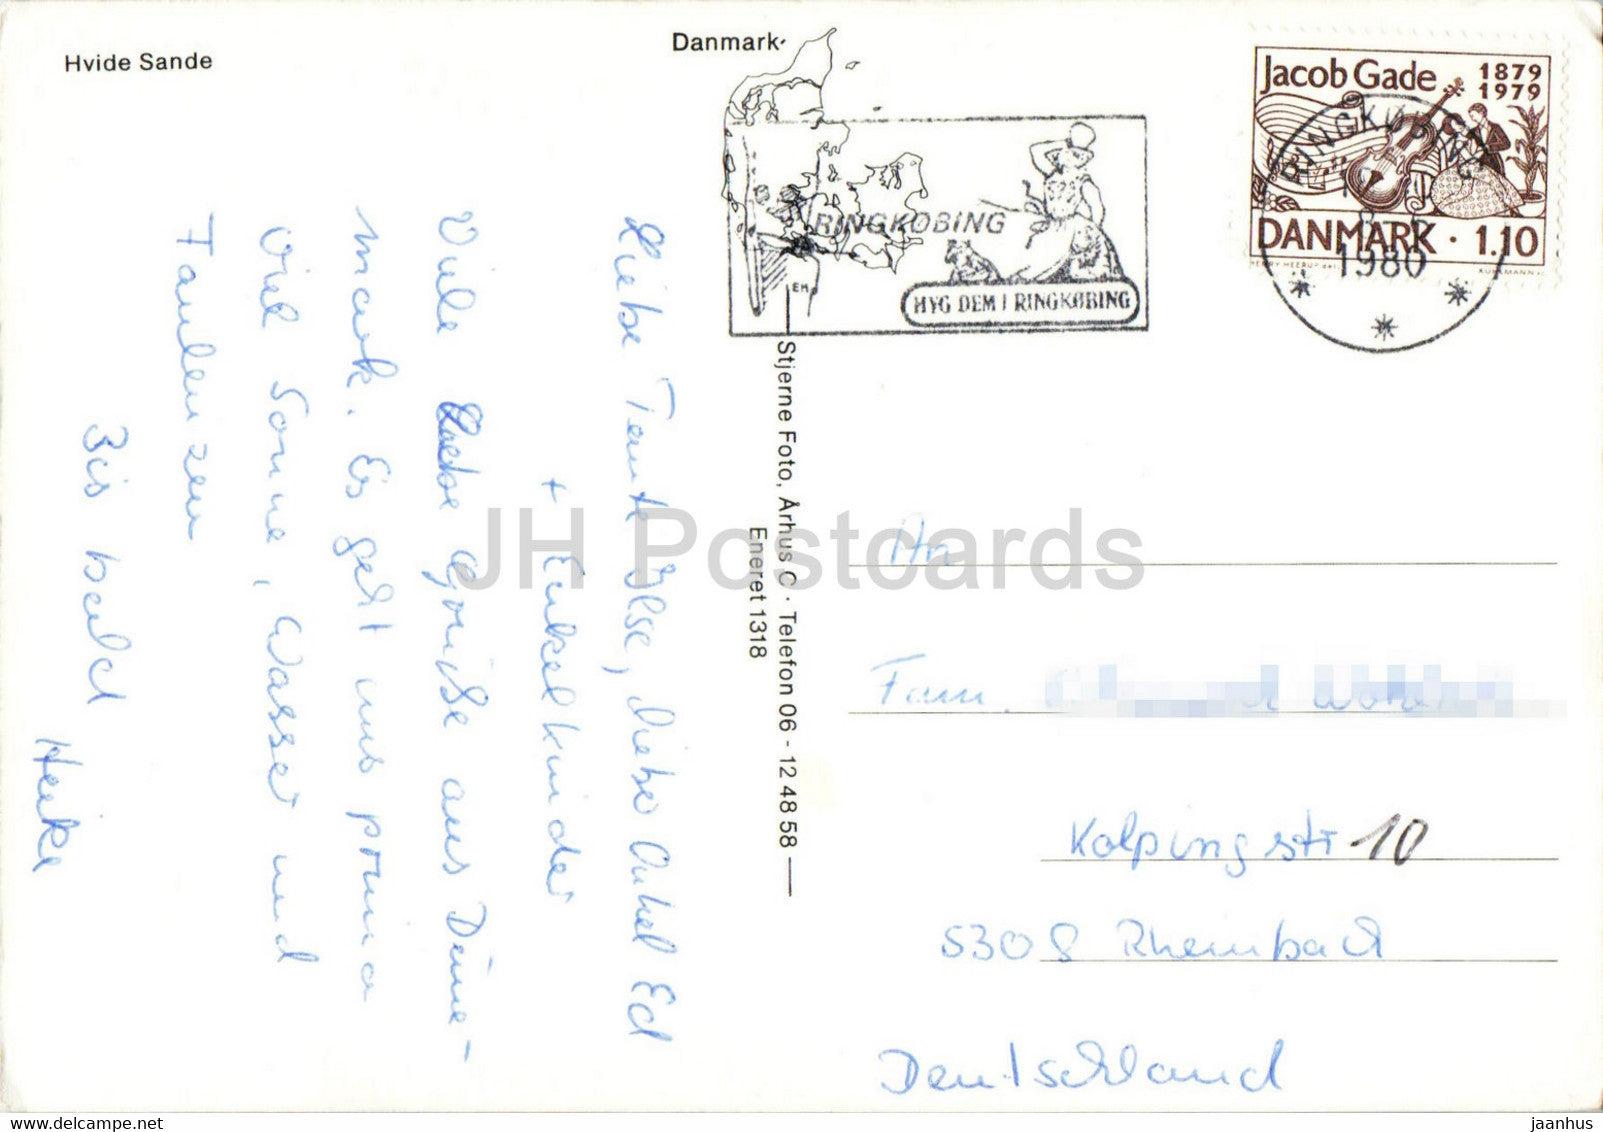 Hvide Sande
Danmark
Jacob Gade 1879
1979
DANMARK · 1.10
RINGKØBING
1980
RINGKØBING
HYG DEM I RINGKØBING
EH
Liebe Tante Ilse, lieber Onkel Ed
+ Enkelkinder
Viele liebe Grüße aus Däne-
mark. Es geht uns prima
Viel Sonne, Wasser und
Faulenzen
Bis bald
Heike
Stjerne Foto, Århus C · Telefon 06 - 12 48 58
Eneret 1318
An
Fam.
Kolpingstr 10
5308 Rheinbach
Deutschland
JH Postcards
delcampe.net
jaanhus